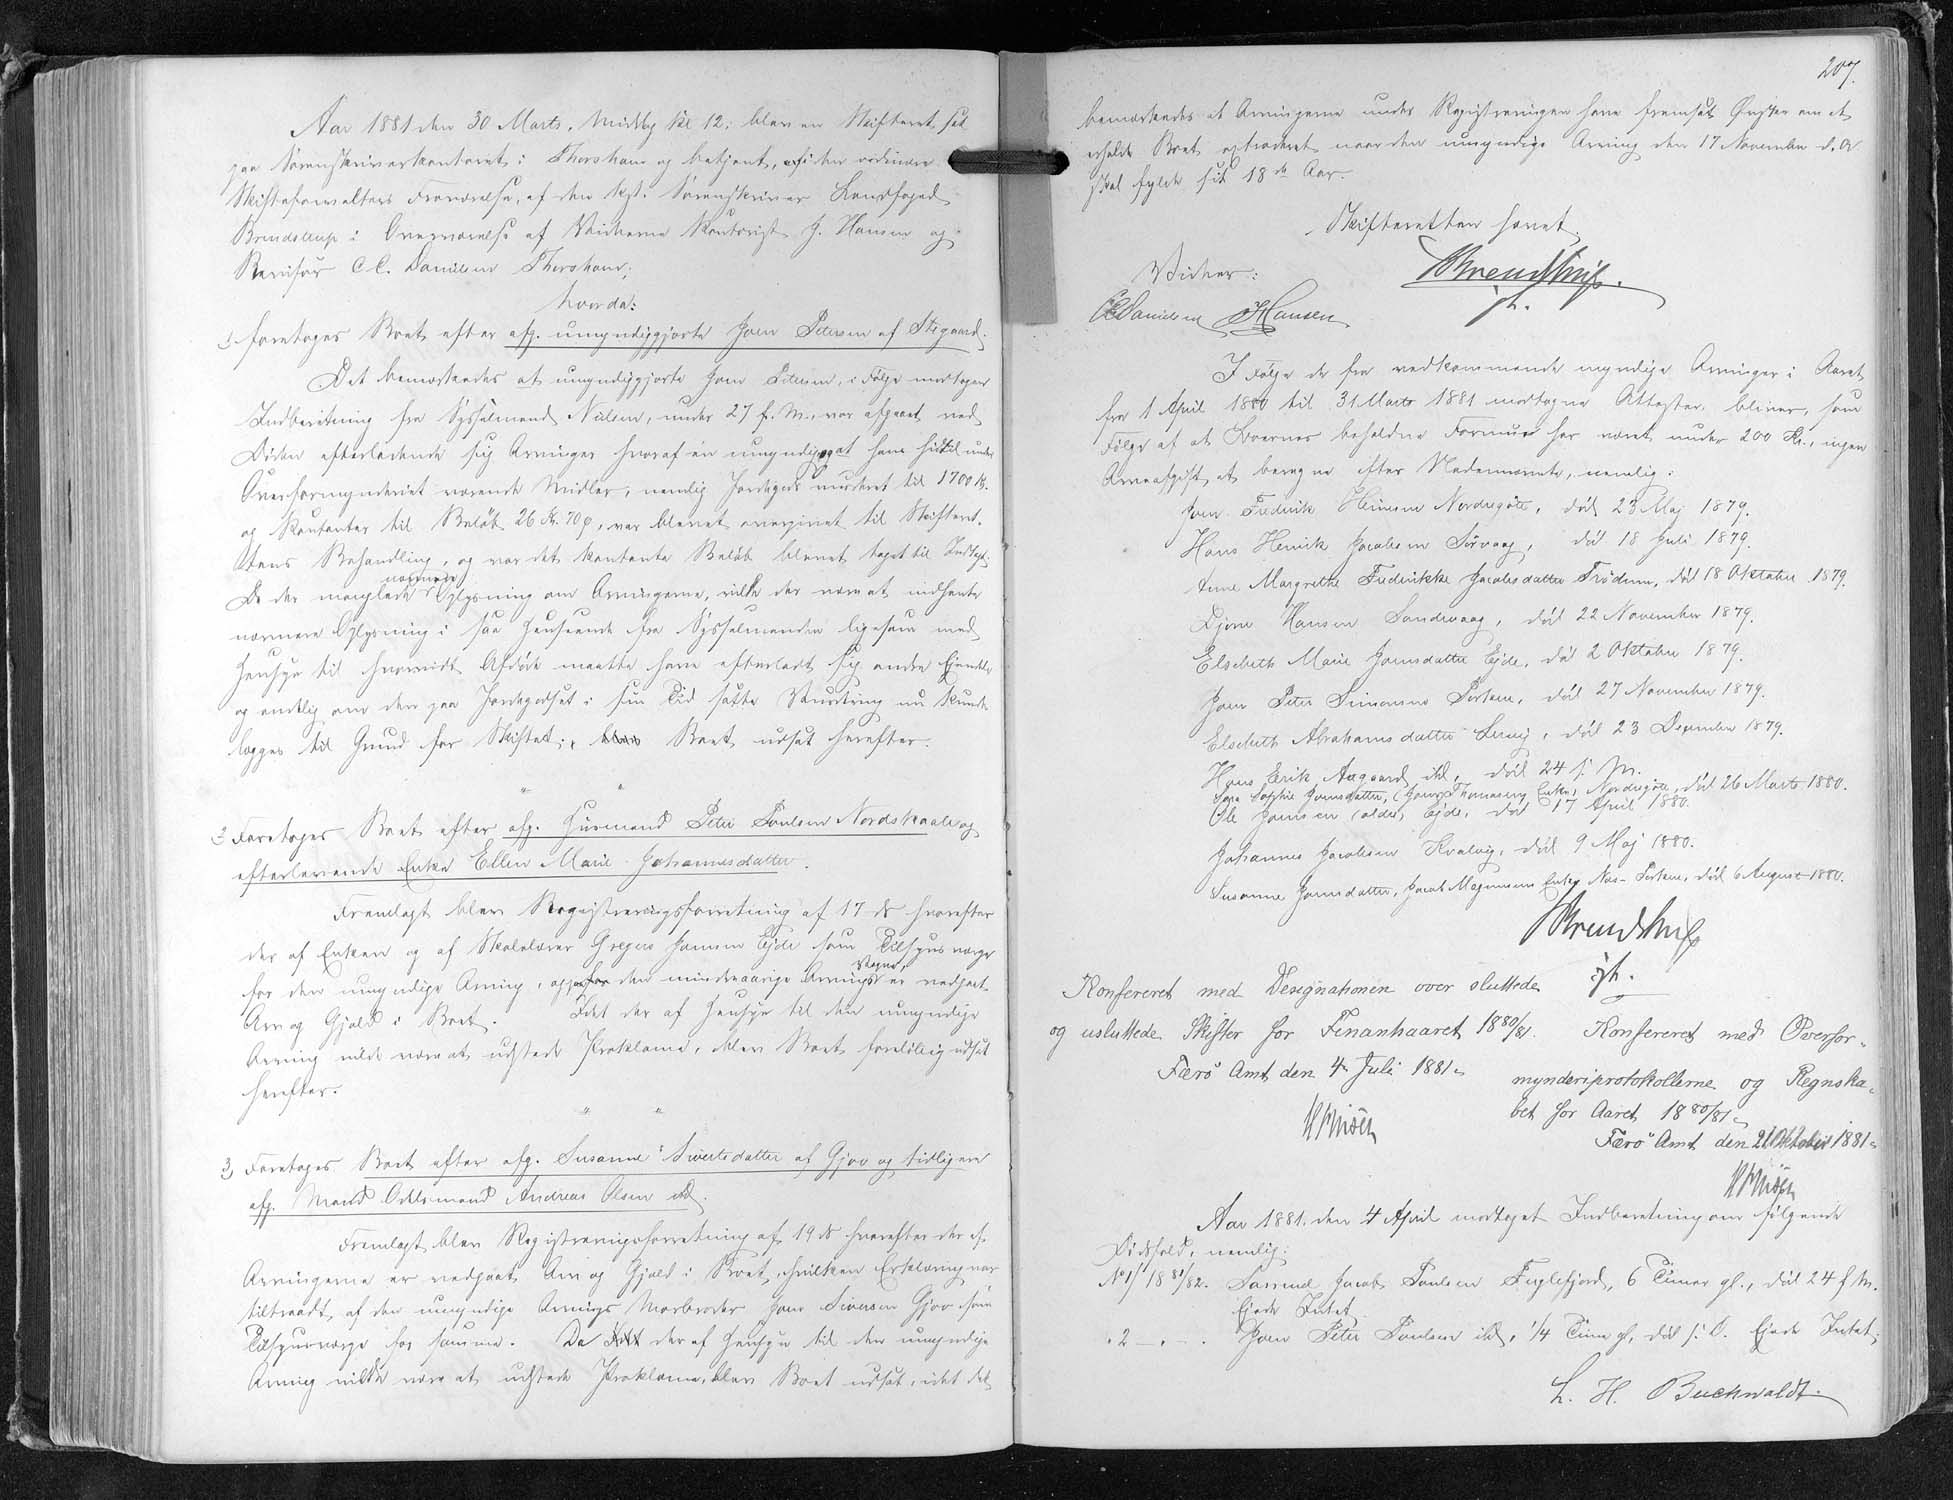 Aar 1881 den 30 Marts, Middag Kl 12, blev en Skifteret sat
paa Sørenskriverkontoret i Thorshavn og betjent, i den ordinære
Skifteforvalters Fraværelse, af den kst. Sørenskriver Landfoged
Brendstrup i Overværelse af Vidnerne Kontorist J. Hansen og
Revisor C.C. Danielsen Thorshavn;
hvorda:
1) foretoges Boet efter afg. umyndiggjorte Joen Petersen af Stegaard.
Det bemærkedes at umyndiggjorte Joen Petersen, i Følge modtagen
Indberetning fra Sysselmand Nielsen, under 27 f. M. var afgaaet ved
Døden efterladende sig Arvinger hvoraf en umyndig, og at hans hidtil under
Overformynderiet værende Midler, nemlig Jordegods vurderet til 1700 Kr.
og Kontanter til Beløb 26 Kr. 70 ø, var blevet overgivet til Skifteret-
tens Behandling, og var det kontante Beløb blevet taget til Indtægt.
Da der manglede nærmere Oplysning om Arvingerne, vilde der være at indhente
nærmere Oplysning i saa Henseende fra Sysselmanden ligesom med
Hensyn til hvorvidt Afdøde maatte have efterladt sig andre Ejendele
og endelig om den paa Jordegodset i sin Tid satte Vurdering nu kunde
lægges til Grund for Skiftet; blev Boet udsat herefter.
" "
2) Foretoges Boet efter afg. Huusmand Peter Poulsen Nordskaale og
efterlevende Enke Ellen Marie Johannesdatter.
Fremlagt blev Registreringsforretning af 17 ds hvorefter
der af Enken og af Skolelærer Gregers Joensen Ejde som Tilsynsværge
for den umyndige Arving, og for den mindreaarige Arvings Vegne, er vedgaaet
Arv og Gjæld i Boet. Idet der af Hensyn til den umyndige
Arving vilde være at udstede Proklama, blev Boet foreløbig udsat
herefter.
" "
3) Foretoges Boet efter afg. Susanne Sivertsdatter af Gjov og tidligere
afg. Mand Odelsmand Andreas Olsen ibd.
Fremlagt blev Registreringsforretning af 19 ds hvorefter der af
Arvingerne er vedgaaet Arv og Gjæld i Boet, hvilken Erklæring var
tiltraadt af den umyndige Arvings Morbroder Joen Sivertsen Gjov som
Tilsynsværge for samme. Da der af Hensyn til den umyndige
Arving vilde være at udstede Proklama, blev Boet udsat, idet det
207.
bemærkedes at Arvingerne under Registreringen have fremsat Ønsker om at
erholde Boet extraderet naar den umyndige Arving den 17 November d. A.
skal fylde sit 18de Aar.
Skifteretten hævet.
Vidner: Brendstrup.
CCDanielsen JHansen kst.
I Følge de fra vedkommende myndige Arvinger i Aaret
fra 1 April 1880 til 31 Marts 1881 modtagne Attester, bliver, som
Følge af at Boernes beholdne Formue har været under 200 Kr., ingen
Arveafgift at beregne efter Nedennævnte, nemlig:
Joen Fredrik Heinesen Nordregøte, død 23 Maj 1879.
Hans Henrik Jacobsen Sørvaag, død 18 Juli 1879.
Anne Margrethe Fredrikke Jacobsdatter Frødum, død 18 Oktober 1879.
Djone Hansen Sandevaag, død 22 November 1879.
Elsebeth Marie Joensdatter Ejde, død 2 Oktober 1879.
Joen Peter Simonsen Porkere, død 27 November 1879.
Elsebeth Abrahamsdatter Lervig, død 23 Desember 1879.
Hans Erik Aagaard ibd, død 24 s. M.
Sara Sophie Joensdatter, (Joen Thomasens Enke) Nordregøte, død 26 Marts 1880.
Ole Joensen (ældre) Ejde, død 17 April 1880.
Johannes Jacobsen Kvalvig, død 9 Maj 1880.
Susanne Joensdatter, Jacob Magnussens Enke, Nes-Porkere, død 6 August 1880.
Brendstrup
kst.
Konfereret med Designationen over sluttede
og usluttede Skifter for Finantsaaret 1880/81.
Færø Amt den 4 Juli 1881
HFinsen
Konfereret med Overfor-
mynderiprotokollerne og Regnska-
bet for Aaret 1880/81
Færø Amt den 21 Oktober 1881
HFinsen
Aar 1881, den 4 April modtaget Indberetning om følgende
Dødsfald, nemlig:
No 1/ 1881/82. Samuel Jacob Poulsen Fuglefjord, 6 Timer gl., død 24 f. M.
Ejede Intet
" 2 — " — Joen Peter Poulsen ibd, 1/4 Time gl, død s. D. Ejede Intet.
L. H. Buchwaldt.